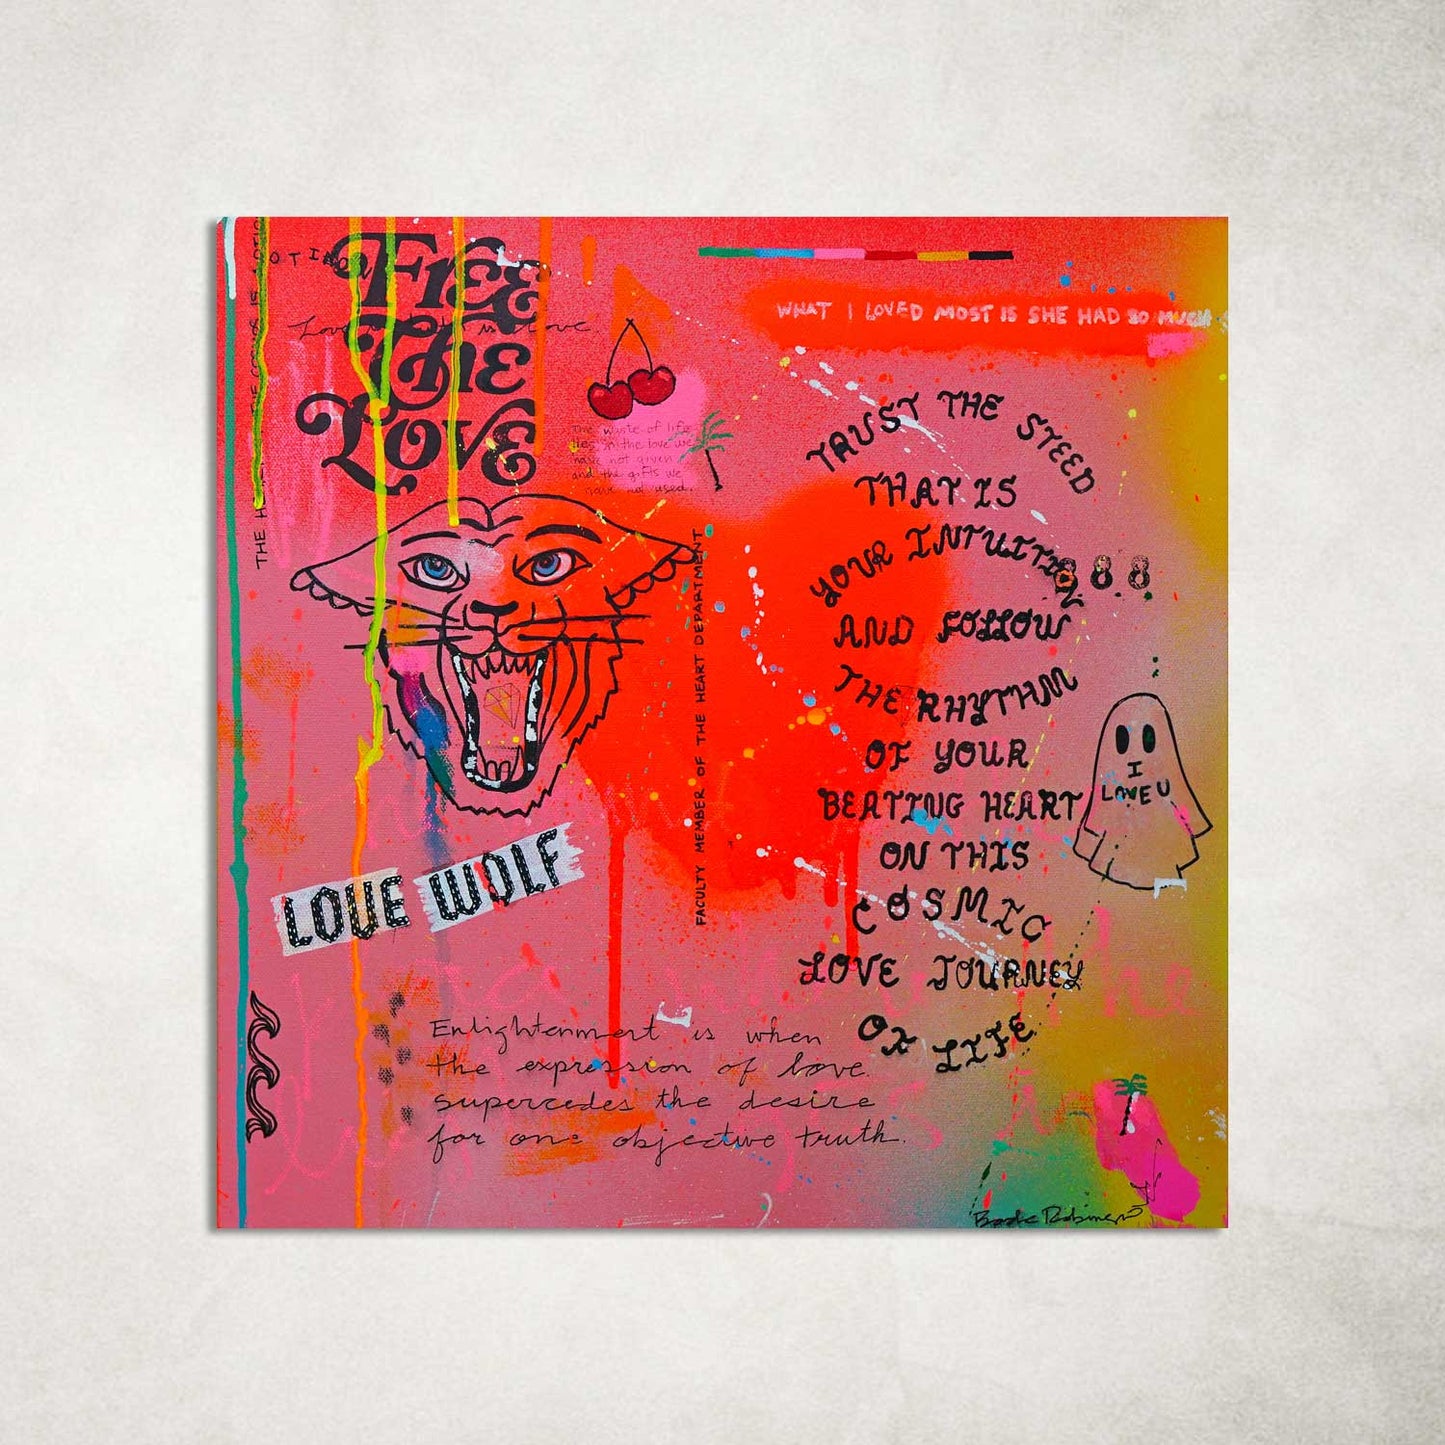 FREE
THE
LOVE
WHAT I LOVED MOST IS SHE HAD SO MUCH
is Love
The waste of life
lies in the love we
have not given
and the gifts we
have not used.
THE
FACULTY MEMBER OF THE HEART DEPARTMENT
TRUST THE STEED
THAT IS
YOUR INTUITION
AND FOLLOW
THE RHYTHM
OF YOUR
BEATING HEART
ON THIS
COSMIC
LOVE JOURNEY
OF LIFE
888
I
LOVE U
LOVE WOLF
Enlightenment is when
the expression of love
supercedes the desire
for one objective truth.